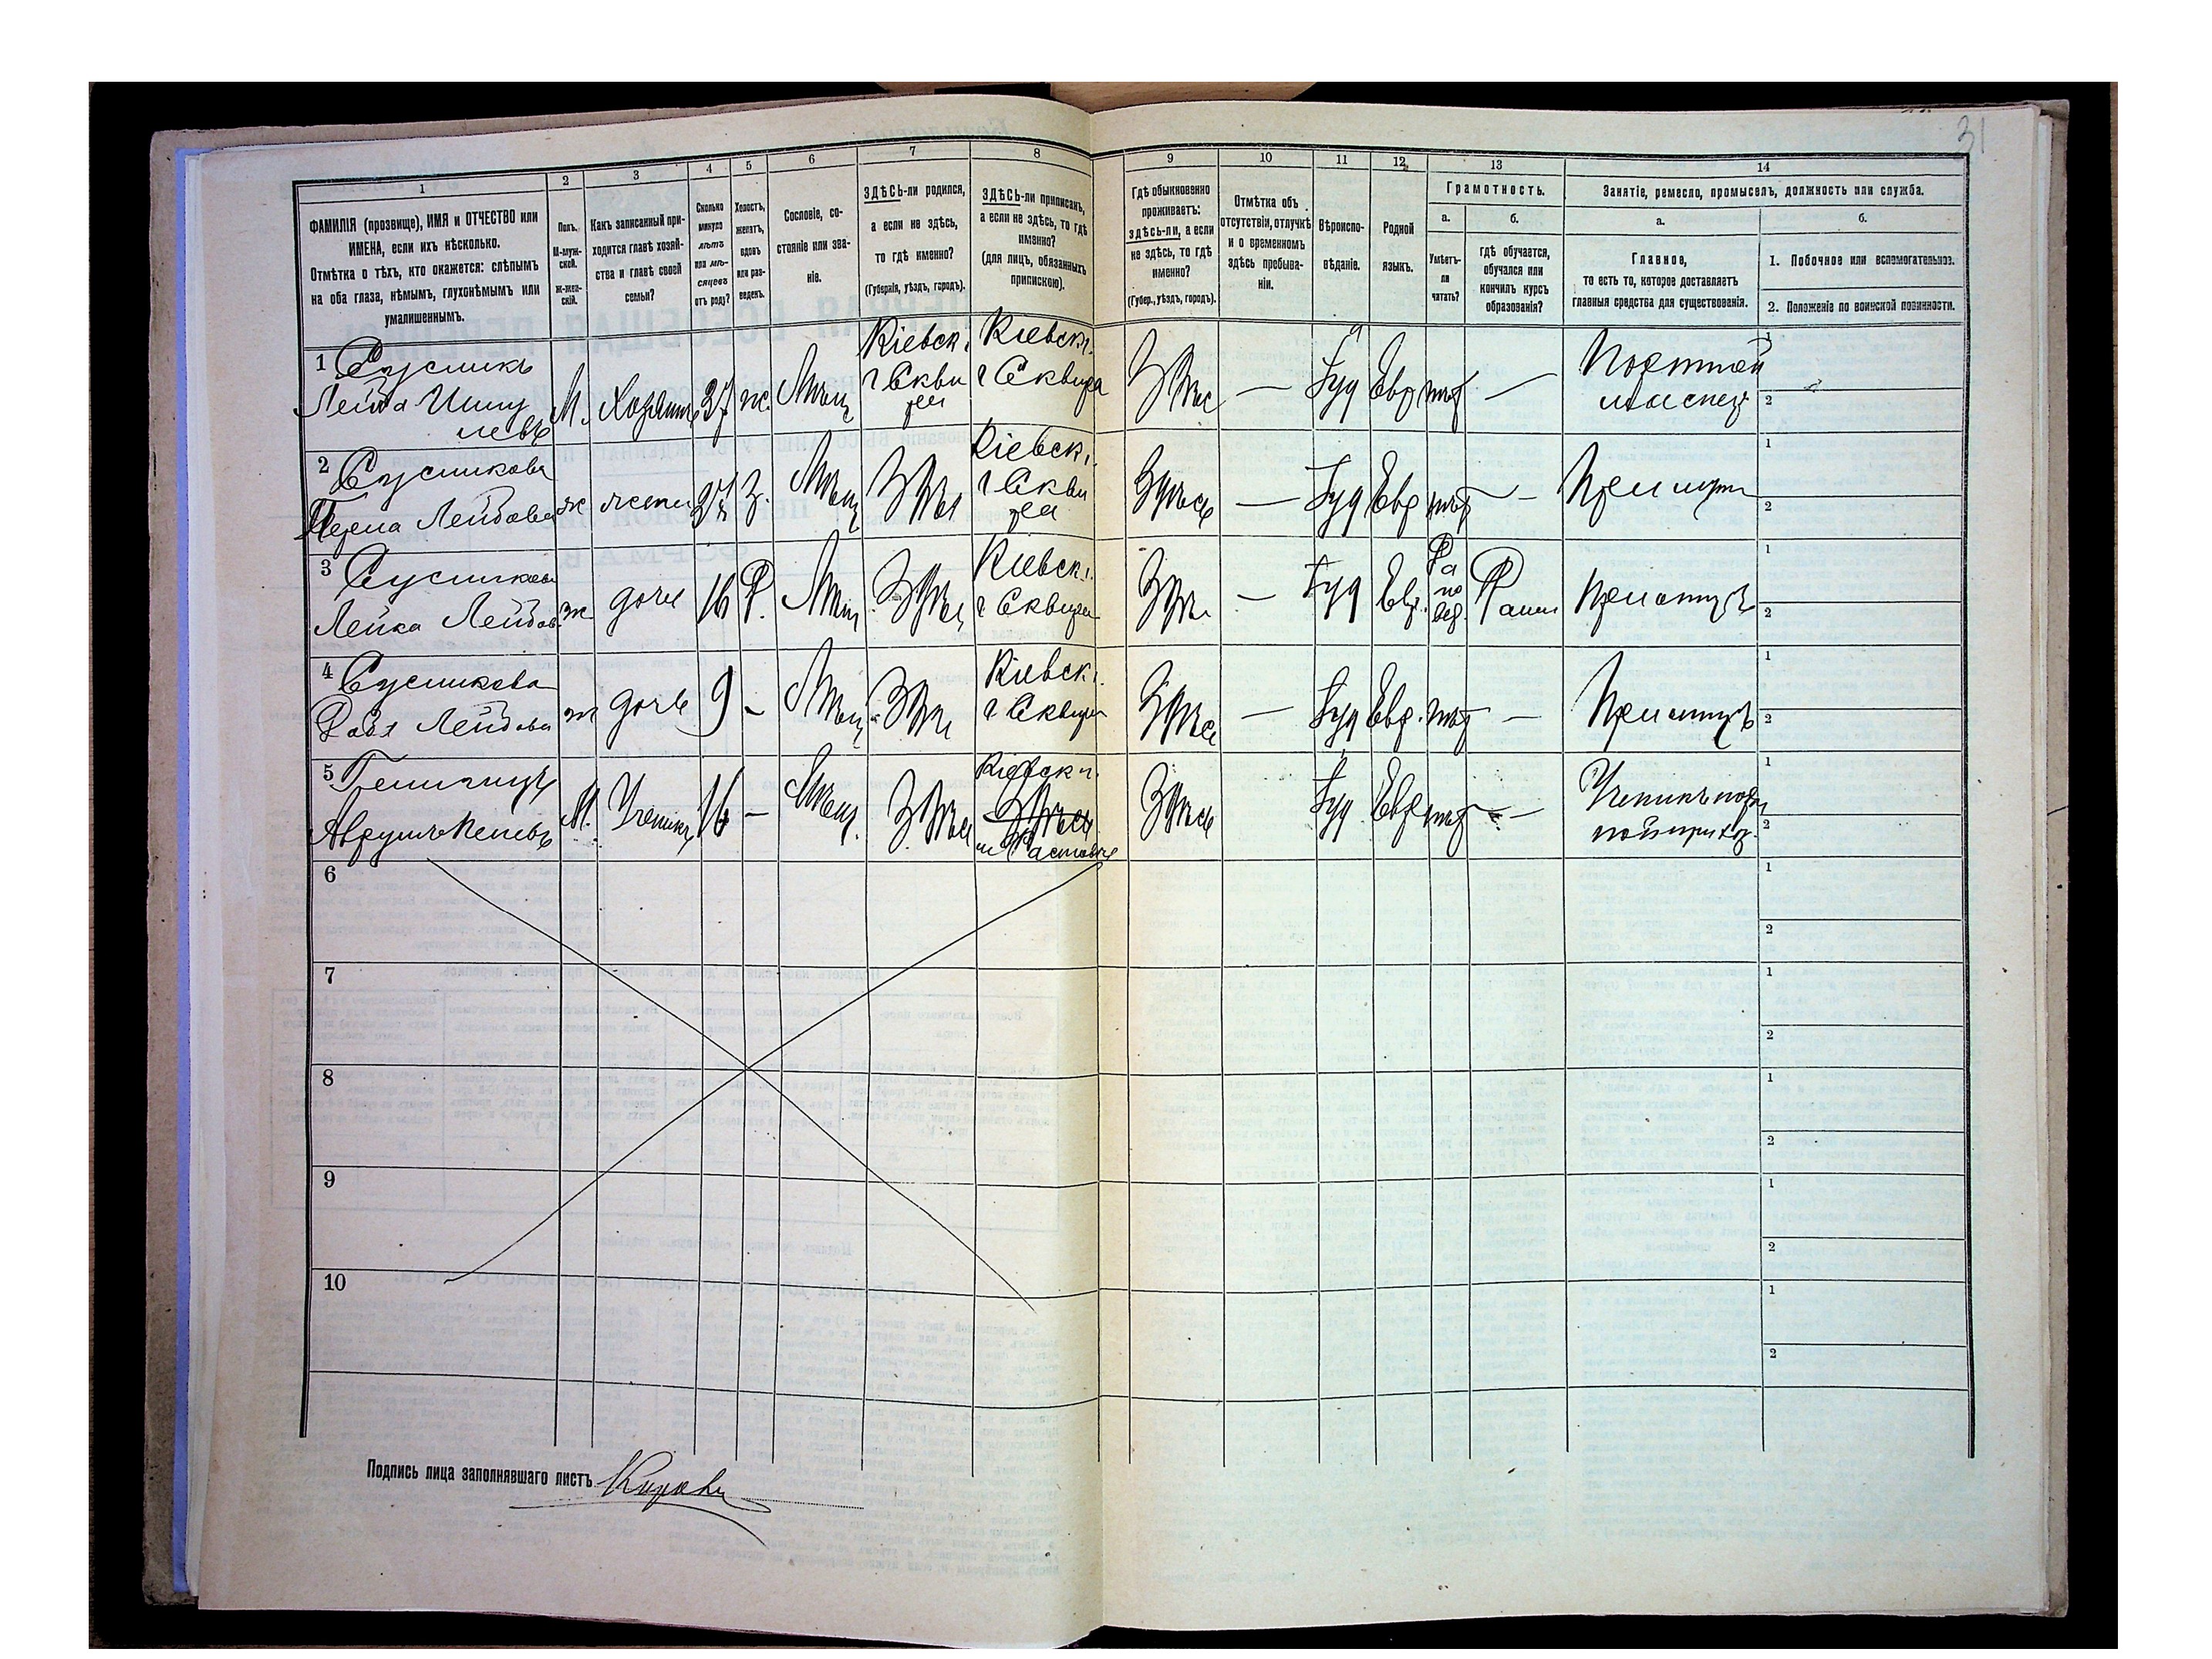 31
1
2
3
4
5
6
7
8
9
10
11
12
13
14
ФАМИЛІЯ (прозвище), ИМЯ и ОТЧЕСТВО или
ИМЕНА, если ихъ нѣсколько.
Отмѣтка о тѣхъ, кто окажется: слѣпымъ
на оба глаза, нѣмымъ, глухонѣмымъ или
умалишеннымъ.
Полъ.
М-муж-
ской.
ж-жен-
скій.
Какъ записанный при-
ходится главѣ хозяй-
ства и главѣ своей
семьи?
Сколько
минуло
лѣтъ
или мѣ-
сяцевъ
отъ роду?
Холостъ,
женатъ,
вдовъ
или раз-
веденъ.
Сословіе, со-
стояніе или зва-
ніе.
ЗДѢСЬ-ли родился,
а если не здѣсь,
то гдѣ именно?
(Губернія, уѣздъ, городъ).
ЗДѢСЬ-ли приписанъ,
а если не здѣсь, то гдѣ
именно?
(для лицъ, обязанныхъ
припискою).
Гдѣ обыкновенно
проживаетъ:
здѣсь-ли, а если
не здѣсь, то гдѣ
именно?
(Губер., уѣздъ, городъ).
Отмѣтка объ
отсутствіи, отлучкѣ
и о временномъ
здѣсь пребыва-
ніи.
Вѣроиспо-
вѣданіе.
Родной
языкъ.
Грамотность.
а.
б.
Умѣетъ-
ли
читать?
гдѣ обучается,
обучался или
кончилъ курсъ
образованія?
Занятіе, ремесло, промыселъ, должность или служба.
а.
б.
Главное,
то есть то, которое доставляетъ
главныя средства для существованія.
1. Побочное или вспомогательное.
2. Положеніе по воинской повинности.
1 Сусликъ
М. Хозяинъ 37 ж. Мѣщ
Кіевск.
г Сквира
Здѣсь — Іуд Евр нѣт —
Портной
1
2
2 Сусликова
Перла Лейбова ж жена 37 З. Мѣщ Здѣсь
Кіевск.
г Сквира
Здѣсь — Іуд Евр нѣт —
1
2
3 Сусликова
Лейка Лейбов. ж дочь 16 Д. Мѣщ Здѣсь
Кіевск.
г Сквира
Здѣсь — Іуд Евр.
1
2
4 Сусликова
Лейбова ж дочь 9 - Мѣщ Здѣсь
Кіевск.
г Сквира
Здѣсь — Іуд Евр. нѣт —
1
2
5
М. Ученикъ 16 — Мѣщ. Здѣсь
Кіевск г.
Здѣсь
Здѣсь Іуд Евр нѣт —
Ученикъ
1
2
6
1
2
7
1
2
8
1
2
9
1
2
10
1
2
Подпись лица заполнявшаго листъ